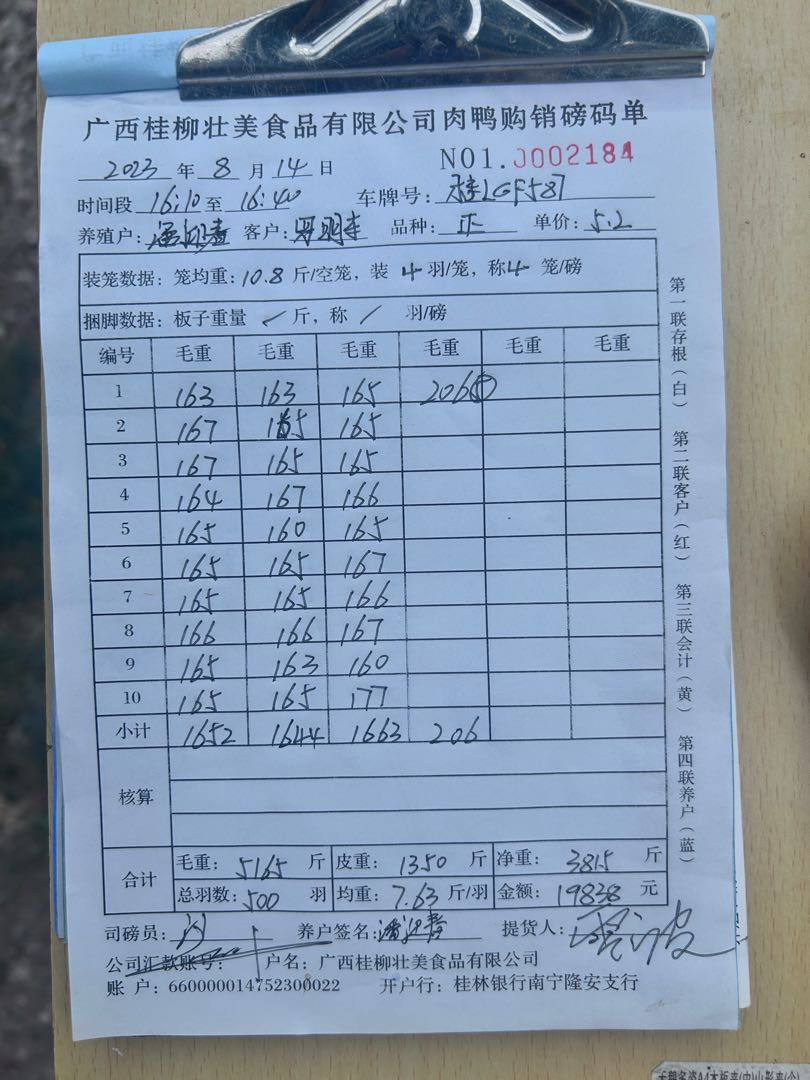 广西桂柳壮美食品有限公司肉鸭购销磅码单
2023 年 8 月 14 日 NO1.0002184
时间段 16:10 至 16:40 车牌号: 桂LGF587
养殖户: 客户: 品种: 单价: 5.2
装笼数据: 笼均重: 10.8 斤/空笼, 装 4 羽/笼, 称 4 笼/磅
捆脚数据: 板子重量 / 斤, 称 / 羽/磅
编号 毛重 毛重 毛重 毛重 毛重 毛重
1 163 163 165 206⑤
2 167 165 165
3 167 165 165
4 164 167 166
5 165 160 165
6 165 165 167
7 165 165 166
8 166 166 167
9 165 163 160
10 165 165 177
小计 1652 1644 1663 206
核算
合计 毛重: 5165 斤 皮重: 1350 斤 净重: 3815 斤
总羽数: 500 羽 均重: 7.63 斤/羽 金额: 19838 元
司磅员: 养户签名: 提货人:
公司汇款账号: 户名: 广西桂柳壮美食品有限公司
账 户: 660000014752300022 开户行: 桂林银行南宁隆安支行
第一联存根(白) 第二联客户(红) 第三联会计(黄) 第四联养户(蓝)